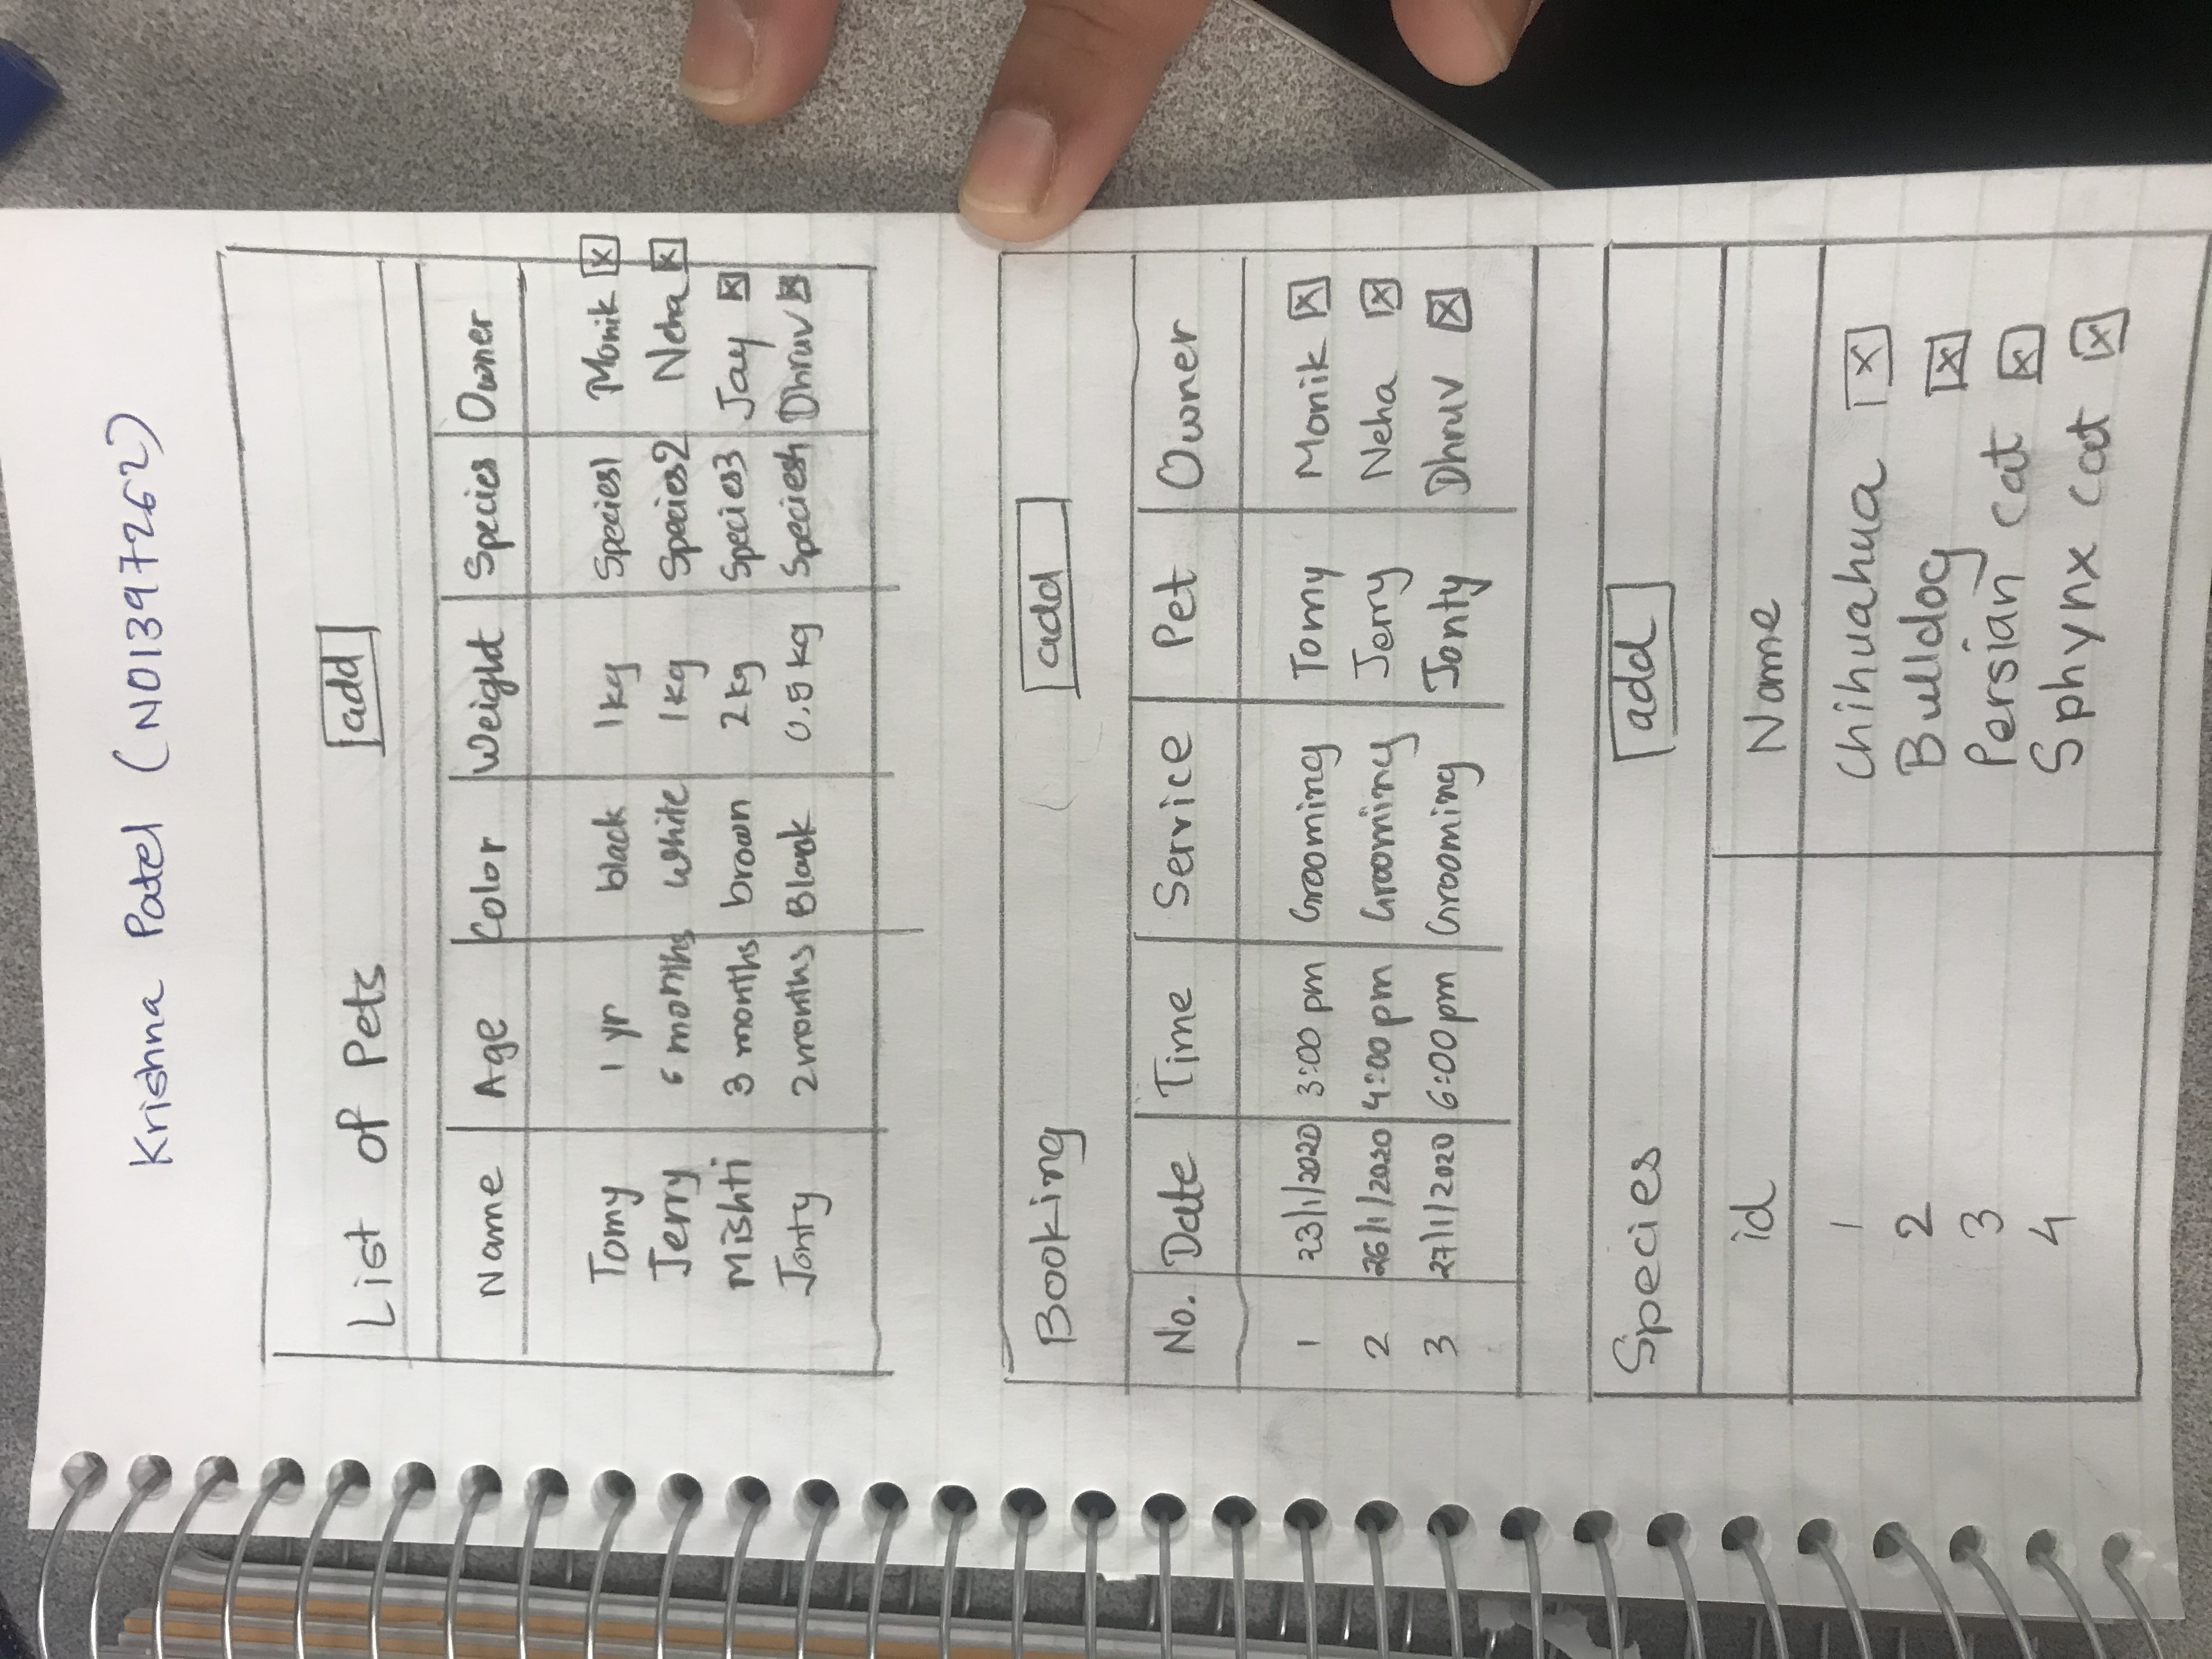 Krishna Patel (N01397262)
List of Pets add
Name Age Color Weight Species Owner
Tomy 1 yr black 1kg Species1 Monik x
Jerry 6 months white 1kg Species2 Neha x
Mishti 3 months brown 2kg Species3 Jay x
Jonty 2months Black 0.5kg Species4 Dhruv x
Booking add
No. Date Time Service Pet Owner
1 23/1/2020 3:00 pm Grooming Tomy Monik x
2 26/1/2020 4:00 pm Grooming Jerry Neha x
3 27/1/2020 6:00 pm Grooming Jonty Dhruv x
Species add
id Name
1 Chihuahua x
2 Bulldog x
3 Persian cat x
4 Sphynx cat x